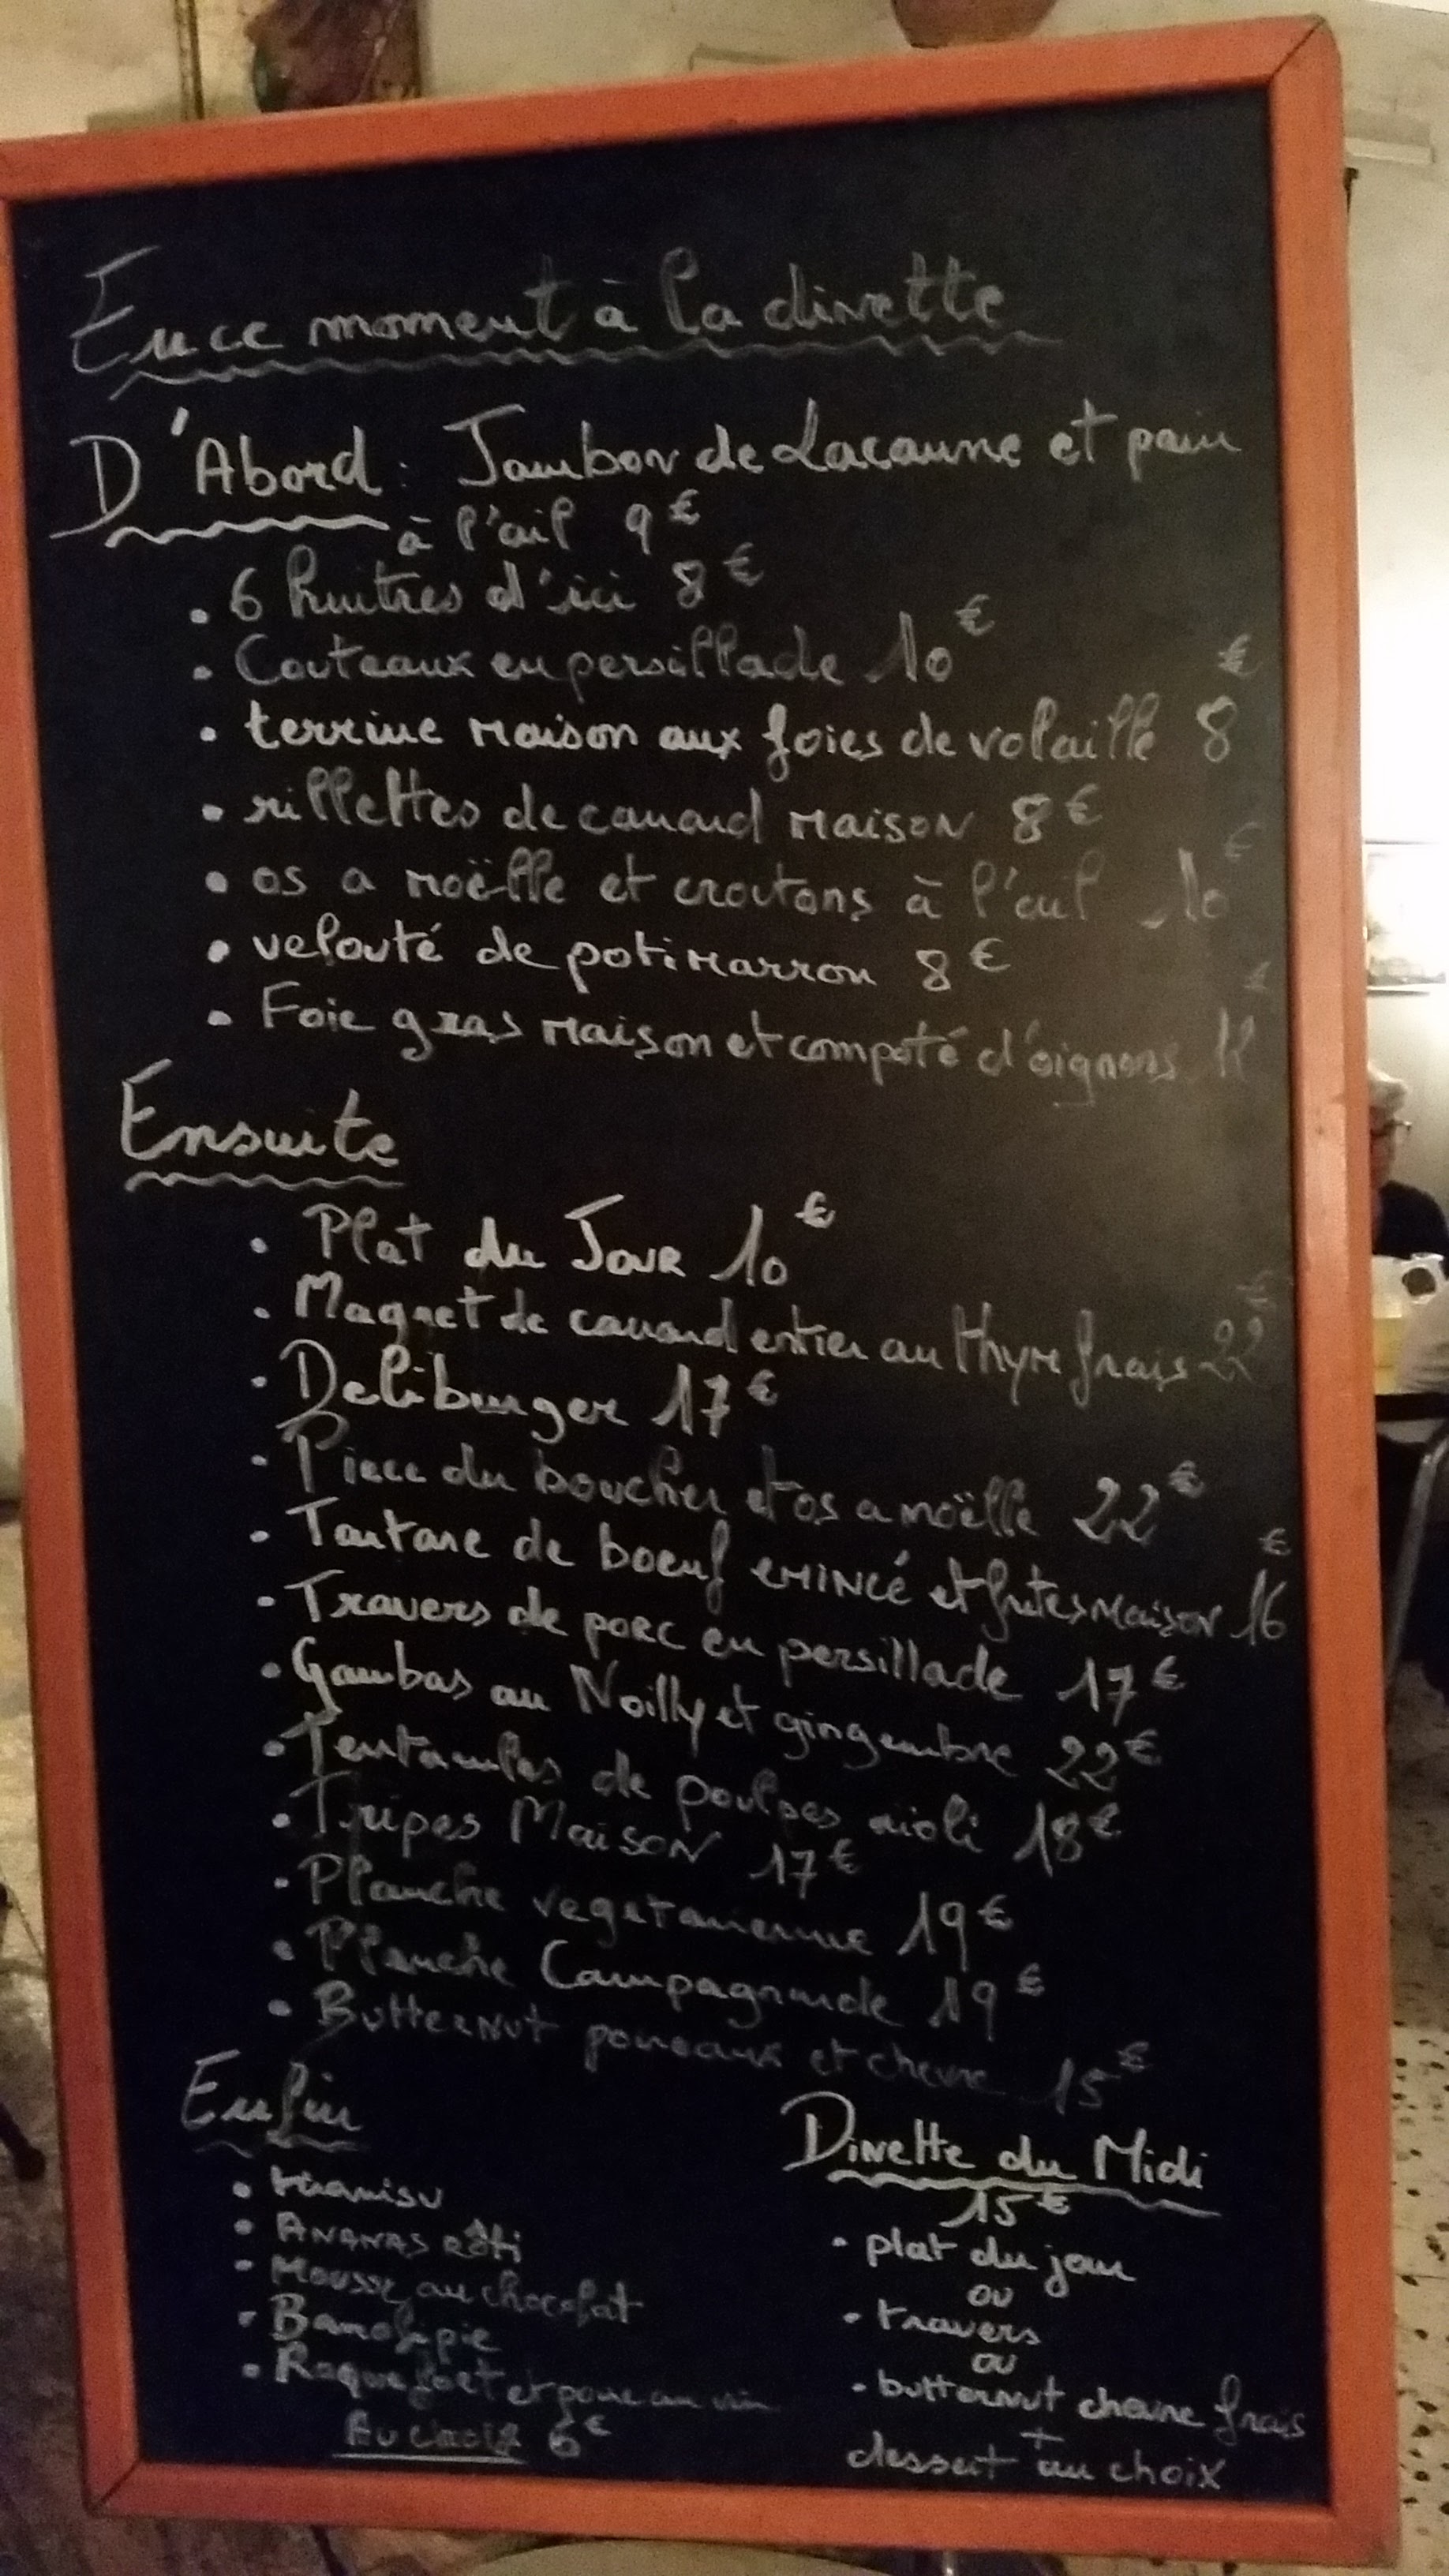 En ce moment à la dinette
D'Abord : Jambon de Lacaune et pain
à l'ail 9€
• 6 huitres d'ici 8€
• Couteaux en persillade 10€
• terrine maison aux foies de volaille 8€
• rillettes de canard maison 8€
• os a moëlle et croutons à l'ail 10€
• velouté de potimarron 8€
• Foie gras maison et compoté d'oignons €
Ensuite
• Plat du Jour 10€
• Magret de canard entier au thym frais 22€
• Deliburger 17€
• Piece du boucher et os a moëlle 22€
• Tartare de boeuf émincé et frites maison 16€
• Travers de porc en persillade 17€
• Gambas au Noilly et gingembre 22€
• Tentacules de poulpes aioli 18€
• Tripes Maison 17€
• Planche vegetarienne 19€
• Planche Campagnarde 19€
• Butternut poireaux et chevre 15€
Enfin
• tiramisu
• Ananas rôti
• Mousse au chocolat
• Banofipie
• Roquefort et poire au vin
Au choix 6€
Dinette du Midi
15€
• plat du jour
ou
• travers
ou
• butternut chevre frais
+
dessert au choix